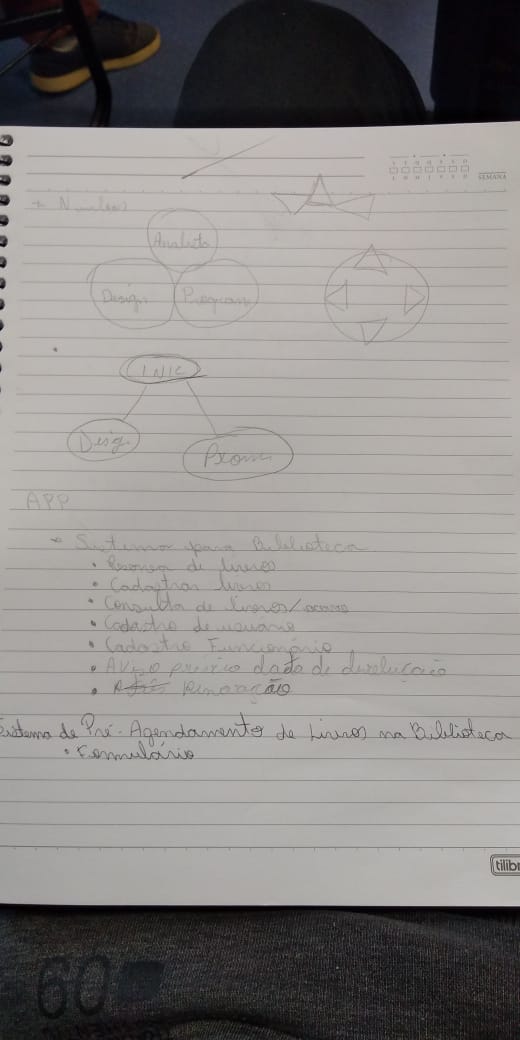 SEMANA
Analista
Design
Program
INIC
Desig.
Prom
APP
Sistema para Biblioteca
• Reserva de livros
• Cadastrar livros
• Consulta de livros/acervo
• Cadastro de usuario
• Cadastro Funcionário
• Aviso prévio data de devolução
• renovação
Sistema de Pré-Agendamento de Livros na Biblioteca
• Formulário
tilibr
60